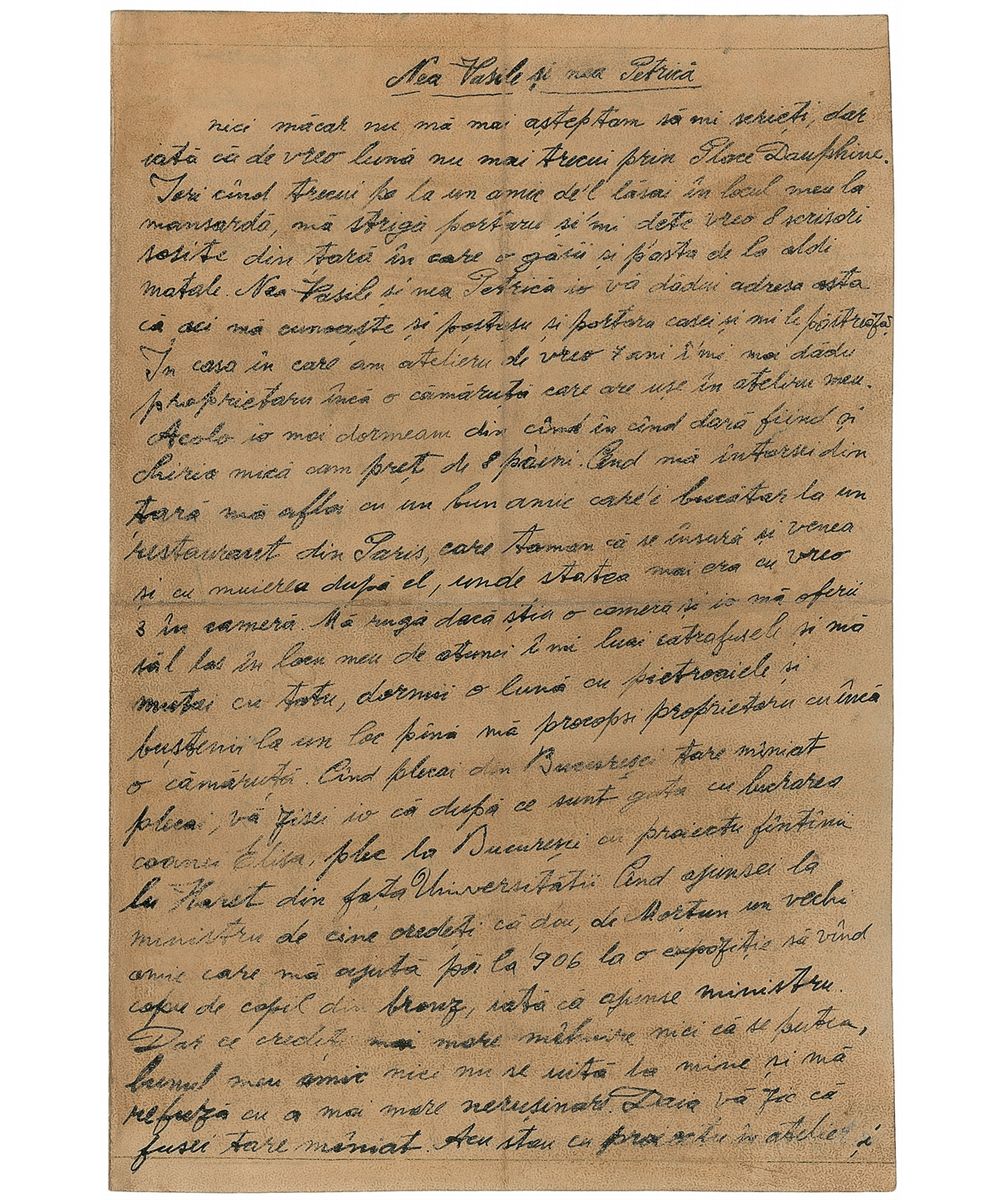 Nea Vasile și nea Petrică
nici măcar nu mă mai așteptam să mi scrieți, dar
iată că de vreo lună nu mai trecui prin Place Dauphine.
Ieri cînd trecui pe la un amic de'l lăsai în locul meu la
mansardă, mă strigă portaru si'mi dete vreo 8 scrisori
sosite din țară în care o găsii și p'asta de la aldi
matale. Nea Vasile și nea Petrică io vă dădui adresa asta
că aci mă cunoaște și poștașu și portaru casei și mi le păstrează
In casa în care am atelieru de vreo 7 ani î'mi mai dădu
proprietaru încă o cămăruță care are ușe în atelieru meu.
Acolo io mai dormeam din cînd în cînd dară fiind și
chiria mică cam preț de 8 pâini. Cînd mă întorsei din
țară mă aflai cu un bun amic care'i bucătar la un
restaurant din Paris, care taman că se însură și venea
și cu muierea după el, unde statea mai era cu vreo
3 în cameră. Mă rugă dacă știu o cameră și io mă oferii
să'l las în locu meu de atunci î mi luai catrafusele și mă
mutai cu totu, dormii o lună cu pietroaiele și
buștenii la un loc pînă mă procopsi proprietaru cu încă
o cămăruță. Cînd plecai din București tare mîniat
plecai, vă zisei io că după ce sunt gata cu lucrarea
coanei Elisa, plec la București cu proiectu fîntînii
lu Haret din fața Universității Cînd ajunsei la
ministru de cine credeți că dau, de Morțun un vechi
amic care mă ajută pă la '906 la o expoziție să vînd
capu de copil din bronz, iată că ajunse ministru.
Dar ce credeți mai mare mîhnire nici că se putea,
bunul meu amic nici nu se uită la mine și mă
refuză cu a mai mare nerușinare. Daca vă zic că
fusei tare mîniat. Acu stau cu proiectu în atelier și